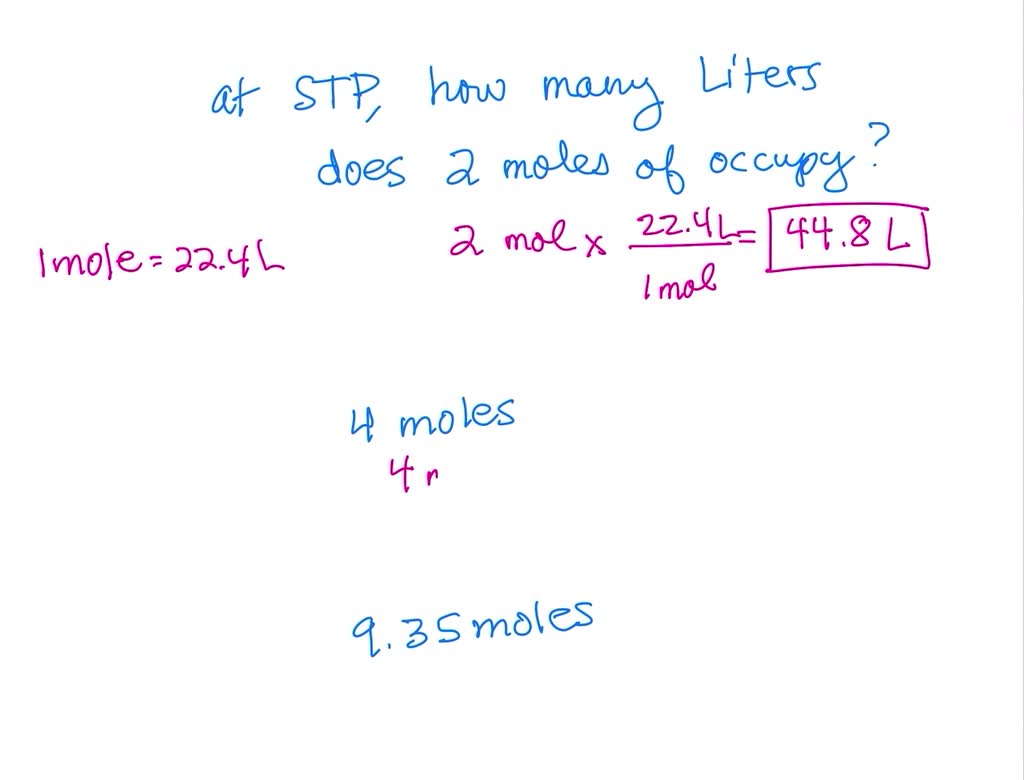 at STP, how many Liters
does 2 moles of occupy?
1 mole = 22.4 L
2 mol x 22.4 L / 1 mol = 44.8 L
4 moles
4
9.35 moles